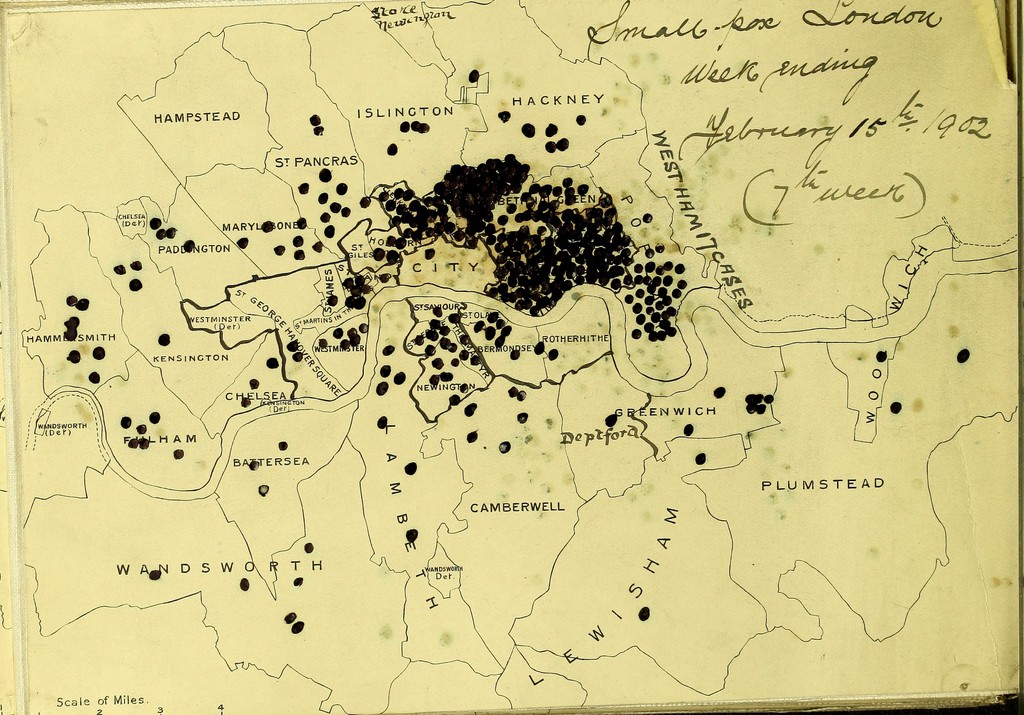 Small-pox London
Week ending
February 15th 1902
(7th week)
Stoke
Newington
HAMPSTEAD
ISLINGTON
HACKNEY
ST PANCRAS
WEST HAM 17 CASES
CHELSEA
(Det)
MARYLEBONE
PADDINGTON
BETHNAL GREEN
HOLBORN
ST
GILES
CITY
ST JAMES
ST MARTINS IN THE
ST GEORGE HANOVER SQUARE
WESTMINSTER
(Det)
WESTMINSTER
ST SAVIOUR
ST OLAVE
BERMONDSEY
ROTHERHITHE
HAMMERSMITH
KENSINGTON
NEWINGTON
CHELSEA
KENSINGTON
(Det)
GREENWICH
WOOLWICH
WANDSWORTH
(Det)
FULHAM
Deptford
BATTERSEA
LAMBETH
PLUMSTEAD
CAMBERWELL
WANDSWORTH
WANDSWORTH
Det.
LEWISHAM
Scale of Miles.
2 3 4